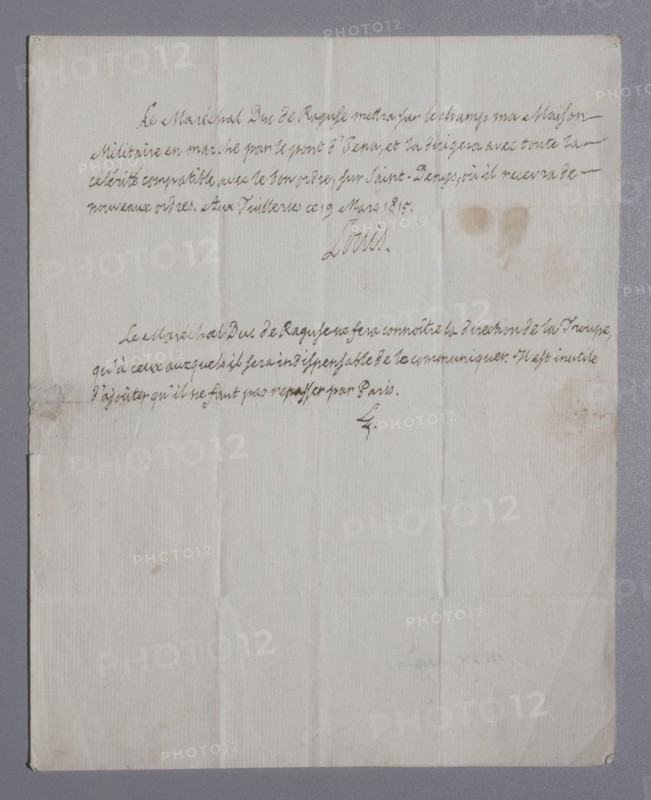 Le Maréchal Duc de Raguse mettra sur le champ ma Maison
Militaire en marche par le pont d'Iena, et la dirigera avec toute la
célérité compatible avec le bon ordre, sur Saint-Denys, où il recevra de
nouveaux ordres. Aux Tuilleries ce 19 Mars 1815.
Louis.
Le Maréchal Duc de Raguse ne fera connoître la direction de la Troupe,
qu'à ceux auxquels il sera indispensable de le communiquer. Il est inutile
d'ajoûter qu'il ne faut pas repasser par Paris.
L.
PHOTO12